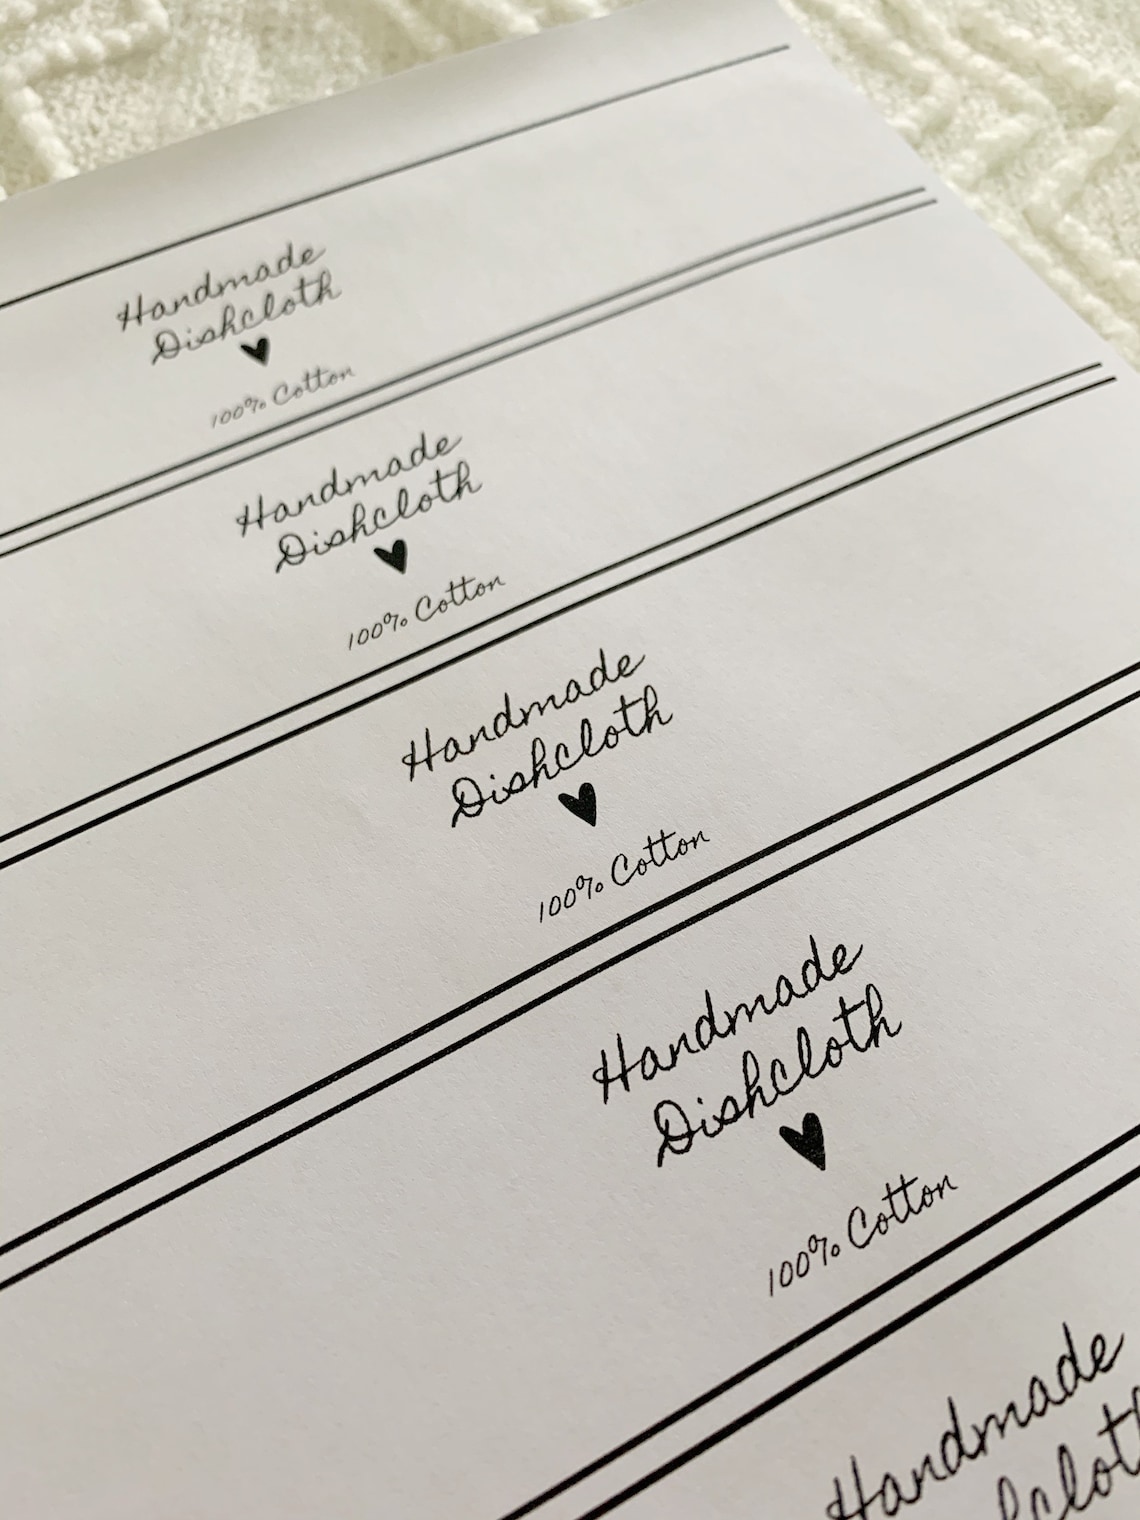 Handmade
Dishcloth
100% Cotton
Handmade
Dishcloth
100% Cotton
Handmade
Dishcloth
100% Cotton
Handmade
Dishcloth
100% Cotton
Handmade